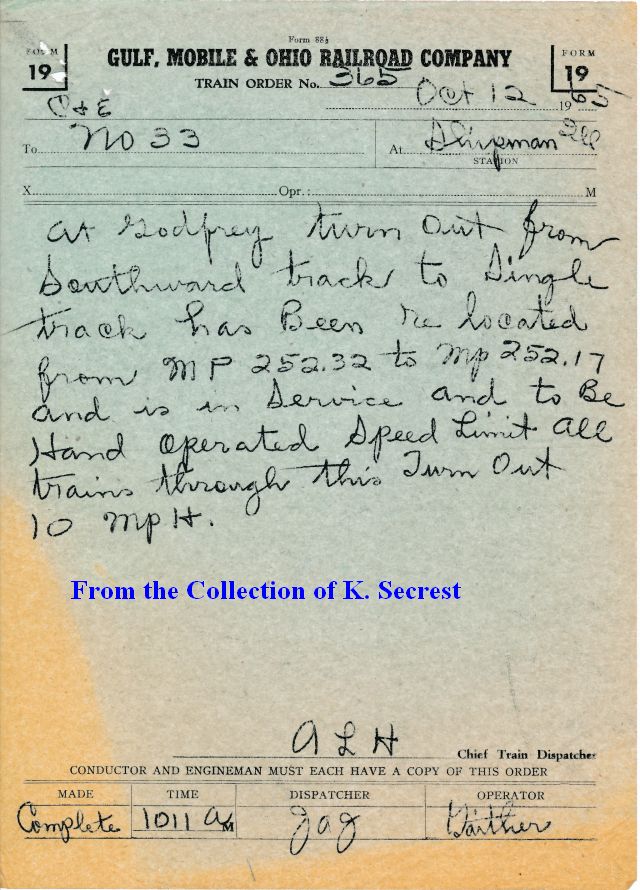 Form 88½
FORM 19
GULF, MOBILE & OHIO RAILROAD COMPANY
FORM 19
TRAIN ORDER No. 365
Oct 12 1965
C & E
To No 33 At Shipman Ill
STATION
X Opr.: M
At Godfrey turn out from
Southward track to Single
track has Been re located
from MP 252.32 to Mp 252.17
and is in Service and to Be
Hand Operated Speed Limit All
trains through this Turn Out
10 MpH.
From the Collection of K. Secrest
A L H Chief Train Dispatcher
CONDUCTOR AND ENGINEMAN MUST EACH HAVE A COPY OF THIS ORDER
MADE TIME DISPATCHER OPERATOR
Complete 1011 A M Jag